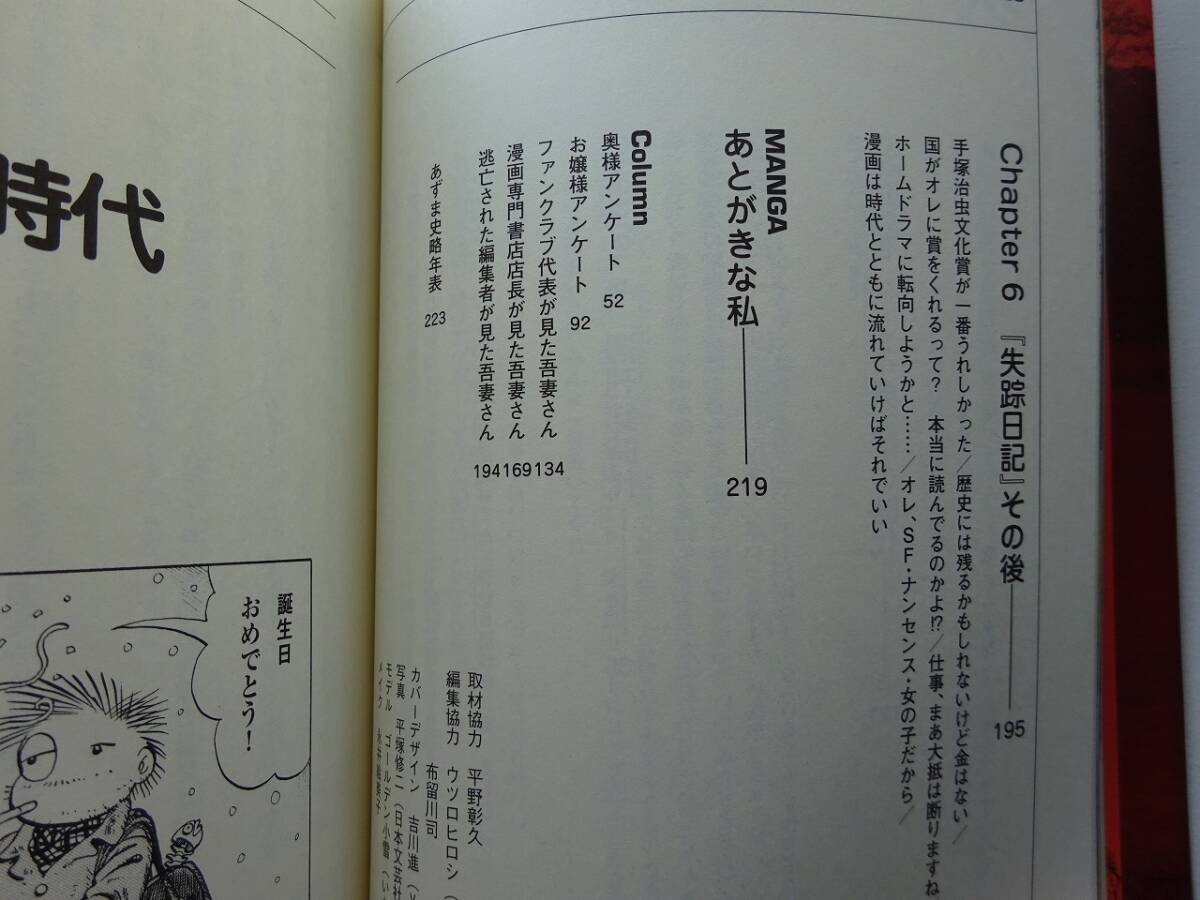 Chapter 6 『失踪日記』その後 195
手塚治虫文化賞が一番うれしかった/歴史には残るかもしれないけど金はない/
国がオレに賞をくれるって? 本当に読んでるのかよ!?/仕事、まあ大抵は断りますね
ホームドラマに転向しようかと……/オレ、SF・ナンセンス・女の子だから/
漫画は時代とともに流れていけばそれでいい
MANGA
あとがきな私 219
Column
奥様アンケート 52
お嬢様アンケート 92
ファンクラブ代表が見た吾妻さん 134
漫画専門書店店長が見た吾妻さん 169
逃亡された編集者が見た吾妻さん 194
あずま史略年表 223
取材協力 平野彰久
編集協力 ウツロヒロシ(
布留川司
カバーデザイン 吉川進(
写真 平塚修二(日本文芸社
モデル ゴールデン小雪(い
メイク
時代
誕生日
おめでとう!